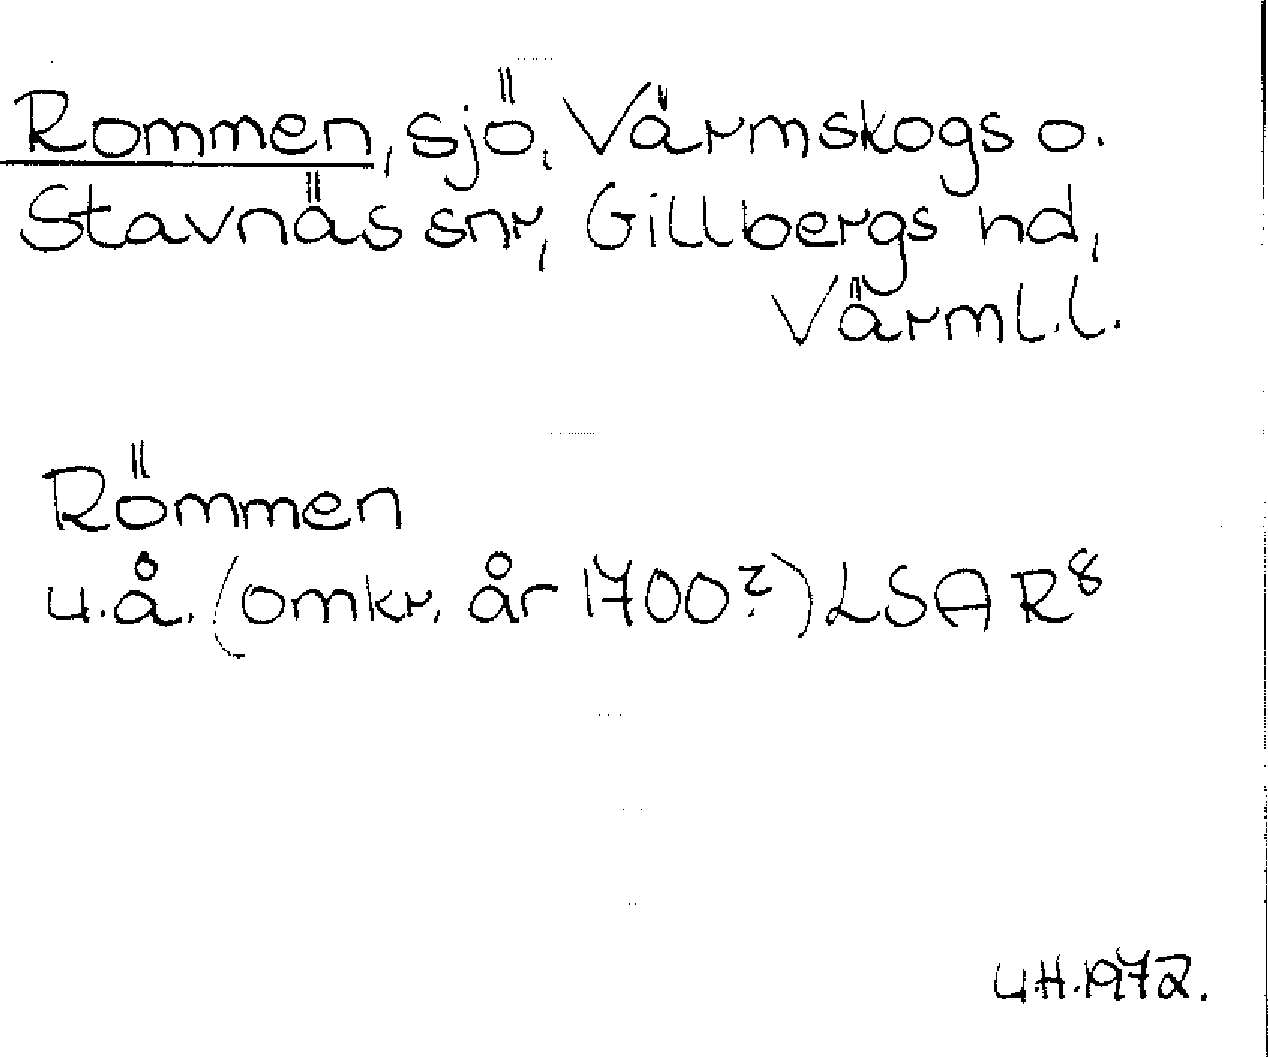 Rommen, sjö, Värmskogs o.
Stavnäs snr, Gillbergs hd,
Värml.l.
Römmen
u.å. (omkr. år 1700?) LSA R8
U.H.1972.